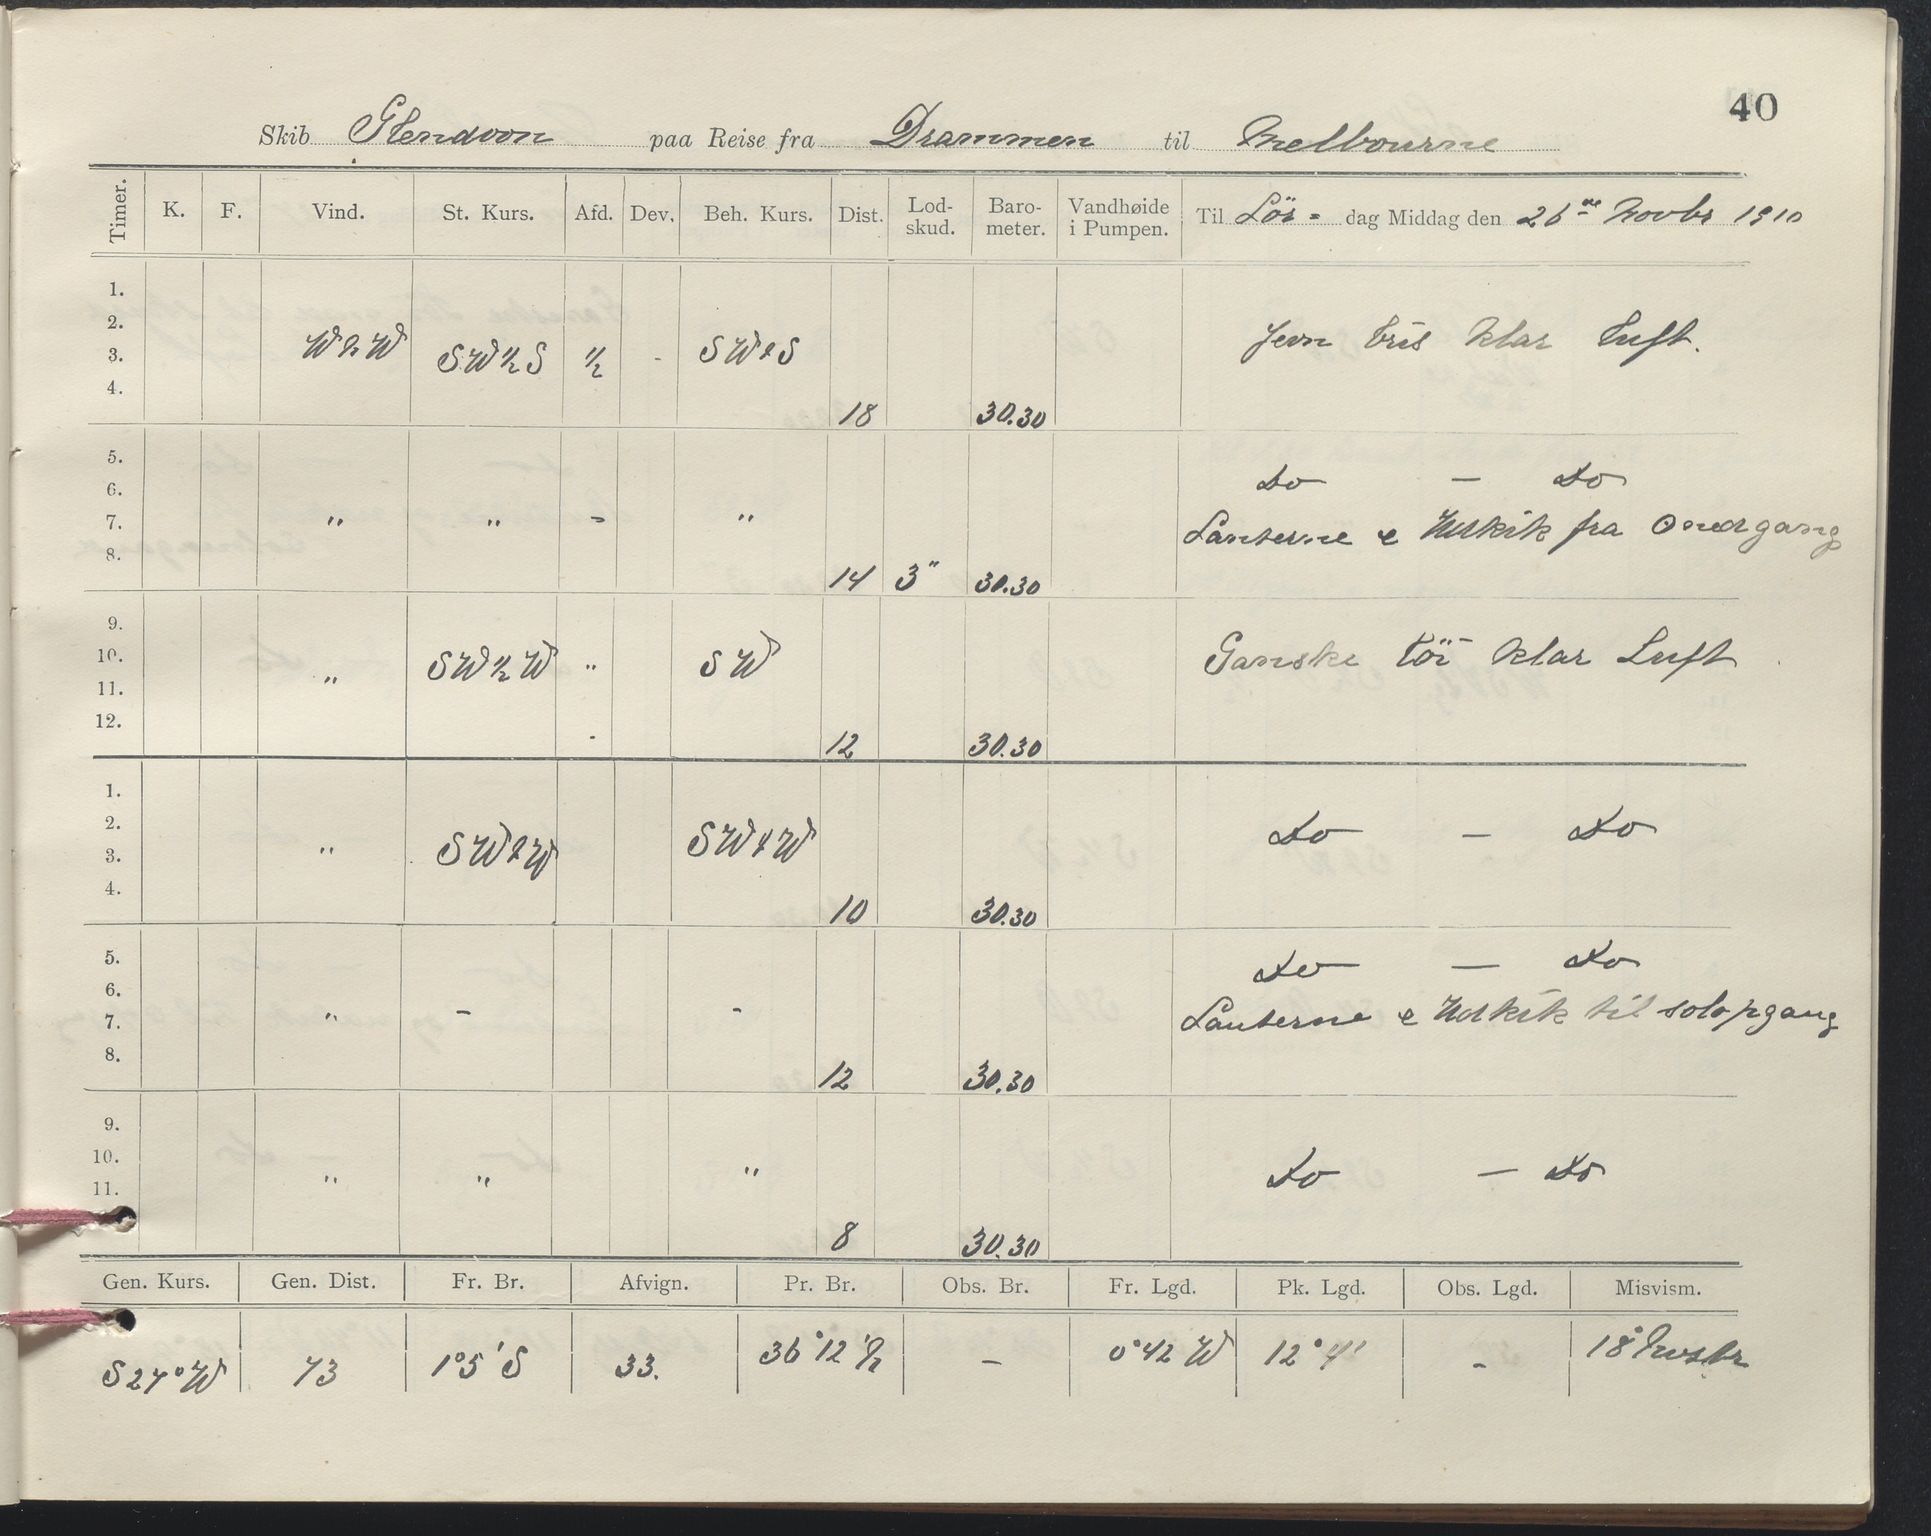 40
Skib Glendoon paa Reise fra Drammen til Melbourne
Timer. K. F. Vind. St. Kurs. Afd. Dev. Beh. Kurs. Dist. Lod-skud. Baro-meter. Vandhøide i Pumpen. Til Lör= dag Middag den 26 Novbr 1910
1.
2.
3. W S.W ½ S ½ - S W S Jevn bris klar luft.
4. 18 30.30
5.
6. Do — Do
7. " " - " Lanterne & Udkik fra nedgang
8. 14 3" 30.30
9.
10. " SW ½ W " S W Ganske klar Luft
11.
12. 12 30.30
1.
2.
3. " S W W SW W Do — Do
4. 10 30.30
5. Do — Do
6.
7. " - - Lanterne & Udkik til solopgang
8. 12 30.30
9.
10. " " " Do — Do
11.
8 30.30
Gen. Kurs. Gen. Dist. Fr. Br. Afvign. Pr. Br. Obs. Br. Fr. Lgd. Pk. Lgd. Obs. Lgd. Misvism.
S 27° W 73 1°5' S 33. 36°12' - 0°42 W 12°4' - 18°